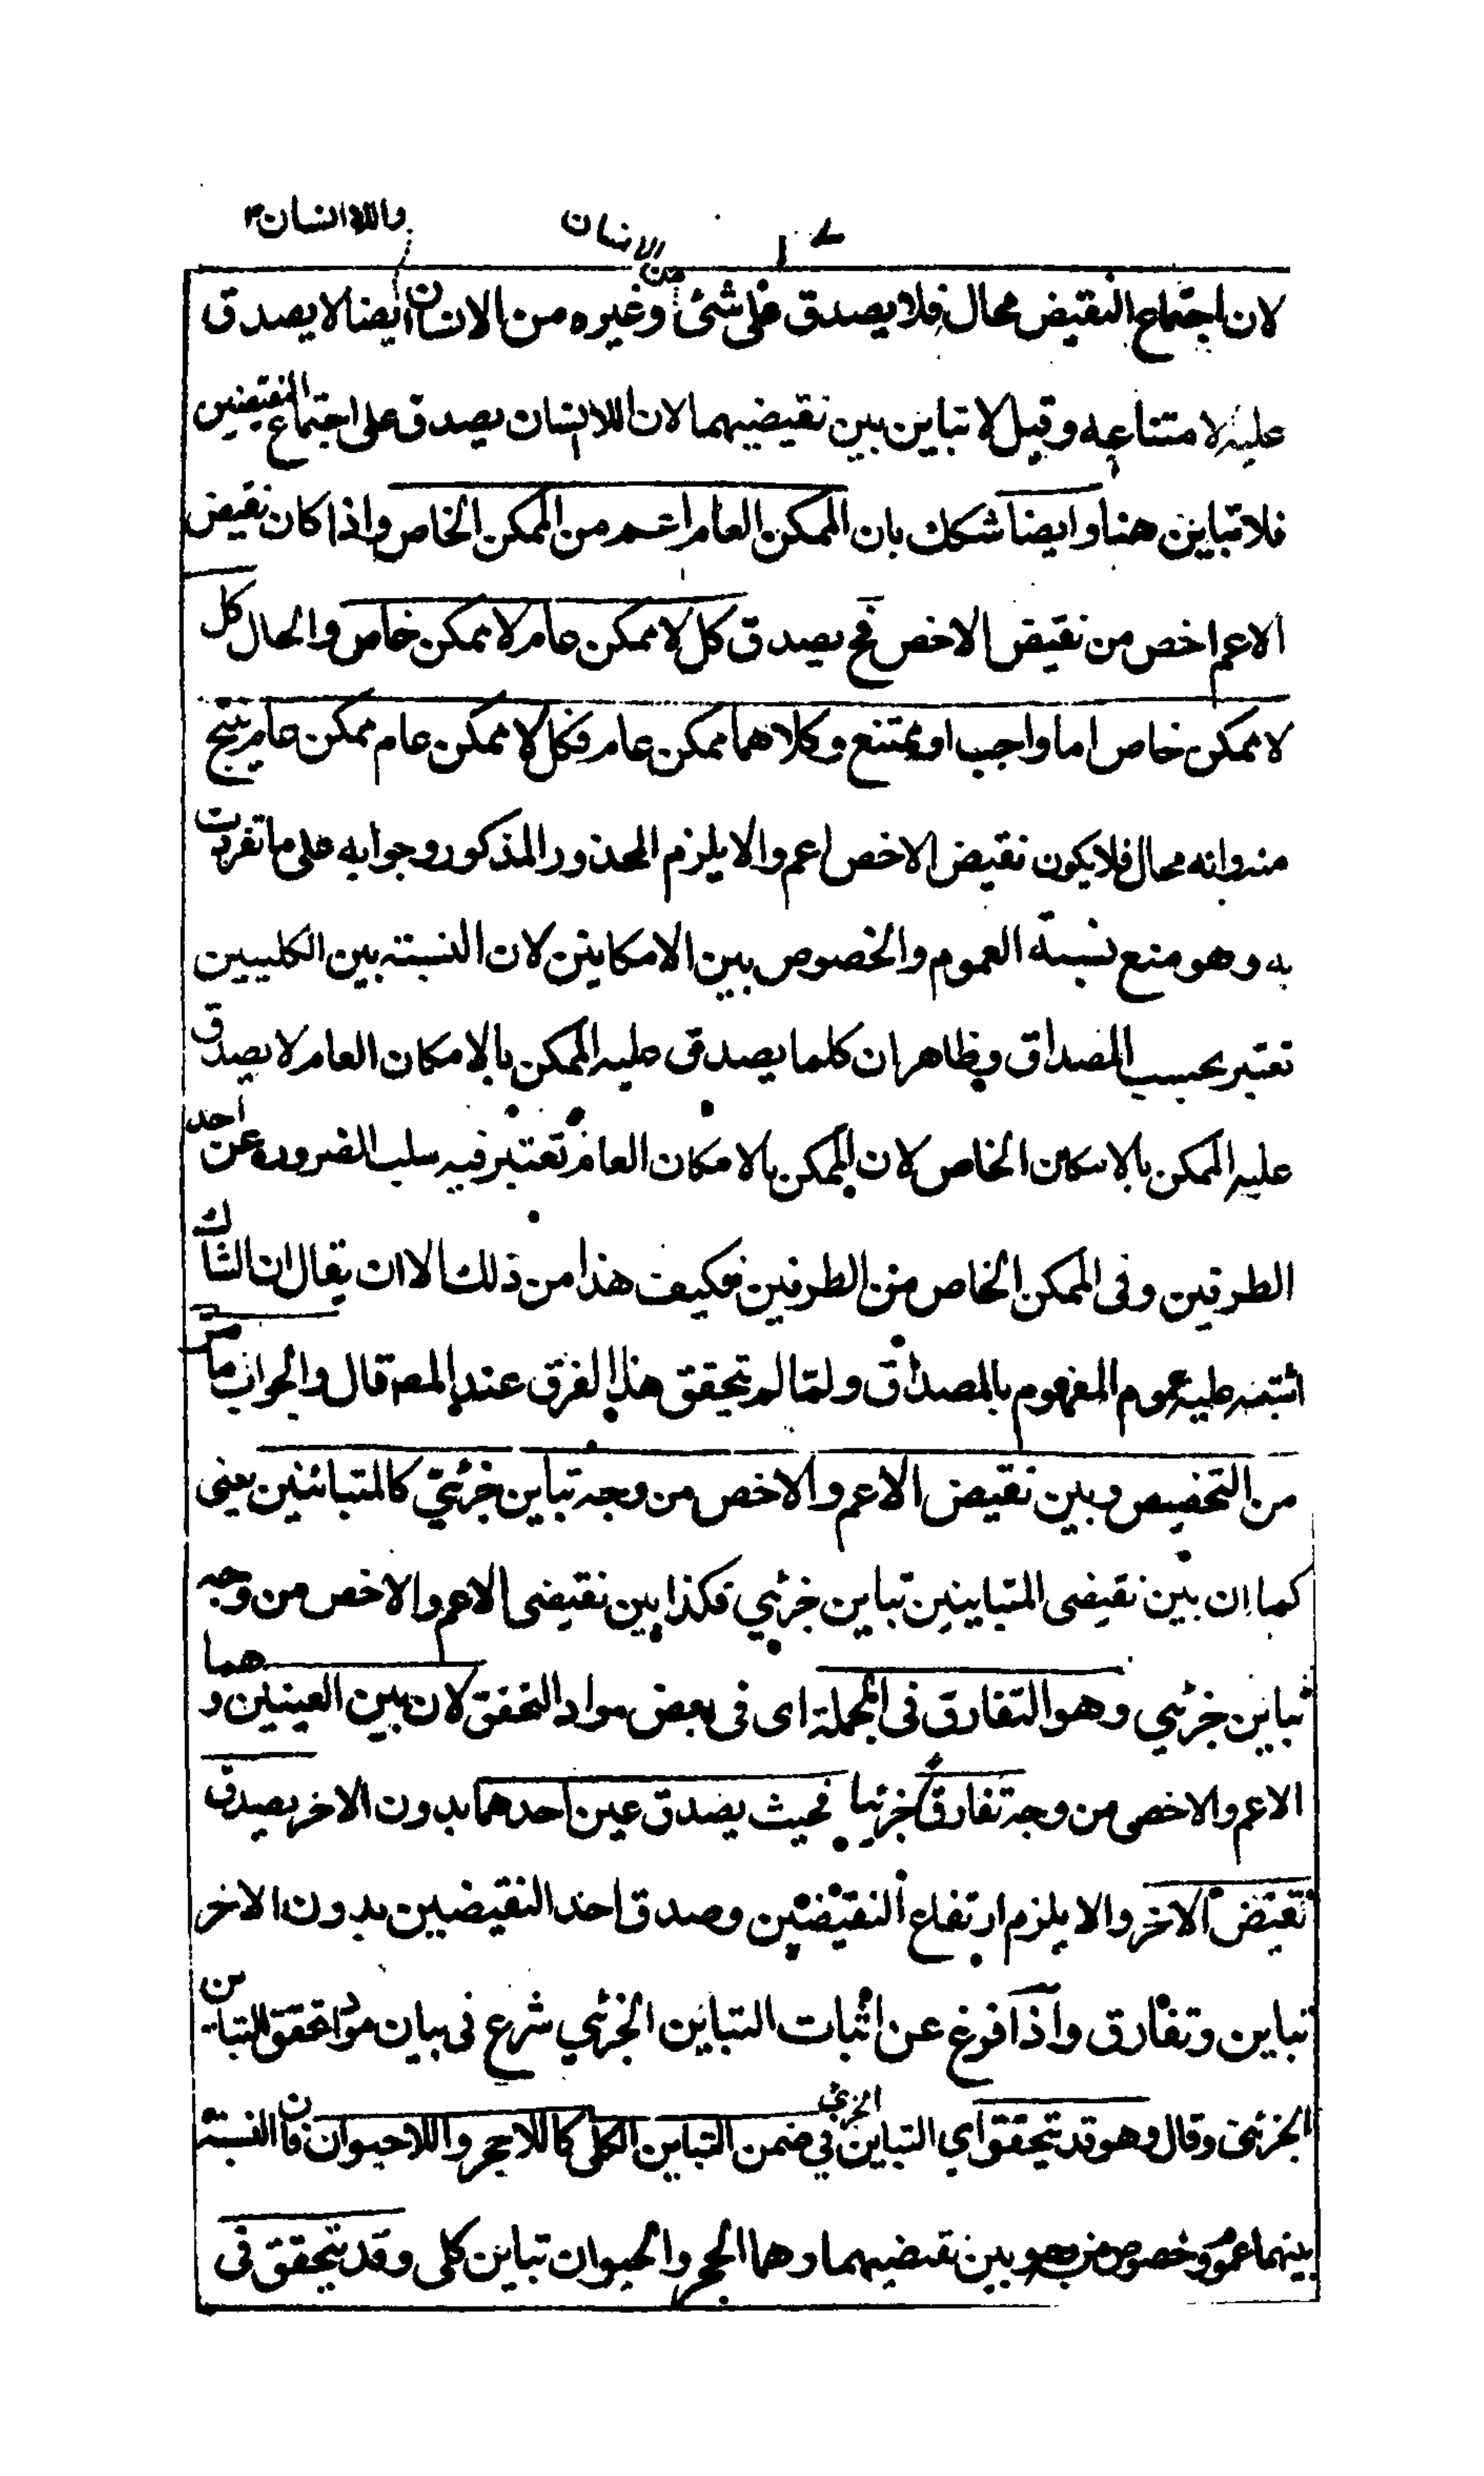 واللاانسان
الانسان
لان اجتماع النقيض محال فلا يصدق على شئ من وغيره من الانسان ايضا لا يصدق
عليه لامتناعه وقيل لا تباين بين نقيضيهما لان اللاانسان يصدق على اجتماع النقيضين
فلا تباين هنا وايضا شكك بان الممكن العام اعم من الممكن الخاص واذا كان نقيض
الاعم اخص من نقيض الاخص فح يصدق كل لا ممكن عام لا ممكن خاص والحال كل
لا ممكن خاص اما واجب او ممتنع وكلاهما ممكن عام فكل لا ممكن عام ممكن عام ينتج
منه وانه محال فلا يكون نقيض الاخص اعم والا يلزم المحذور المذكور وجوابه على ما تفردت
به وهو منع نسبة العموم والخصوص بين الامكانين لان النسبته بين الكليين
تعتبر بحسب المصداق وظاهر ان كلما يصدق عليه الممكن بالامكان العام لا يصدق
عليه الممكن بالامكان الخاص لان الممكن بالامكان العام تعتبر فيه سلب الضروره عن احد
الطرفين وفى الممكن الخاص من الطرفين فكيف هذا من ذلك الا ان يقال ان الشاك
اشتبه عليه عموم المفهوم بالمصداق ولما لم تحقق هذا الفرق عند المصـ قال والجواب ما مر
من التخصيص وبين نقيض الاعم والاخص من وجه تباين جزئي كالمتبائنين يعنى
كما ان بين نقيضى المتباينين تباين جزئي فكذا بين نقيضى الاعم والاخص من وجه
تباين جزئي وهو التفارق فى الجملة اى فى بعض مواد التحقق لان بين العينين وهما
الاعم والاخص من وجه تفارق جزئيا فحيث يصدق عين احدهما بدون الاخر يصدق
نقيض الاخر والا يلزم ارتفاع النقيضين وصدق احد النقيضين بدون الاخر
تباين وتفارق واذا فرغ عن اثبات التباين الجزئي شرع فى بيان مواد تحقق التباين
الجزئى وقال وهو قد يتحقق اي التباين الجزئي في ضمن التباين الكلى كاللاحجر واللاحيوان فان النسبته
بينهما عموم وخصوص من وجه وبين نقيضيهما وهما الحجر والحيوان تباين كلى وقد يتحقق فى